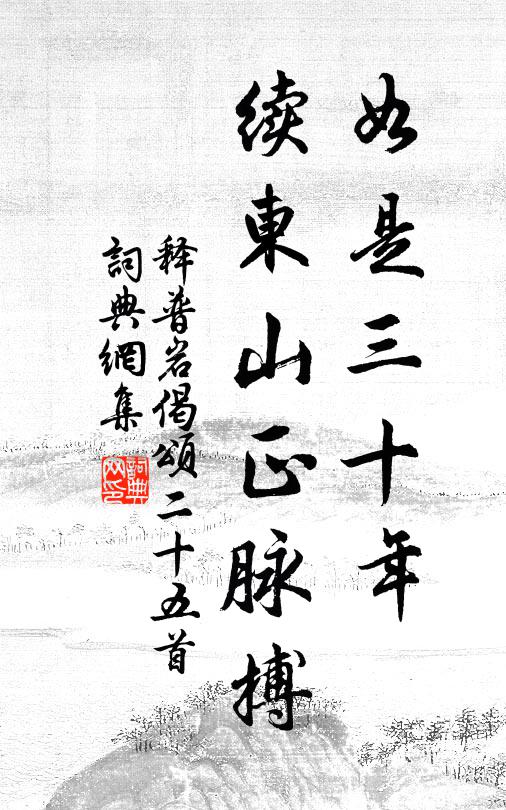 如是三十年
续東山正脉搏
释普岩偈頌二十五首
詞典網集